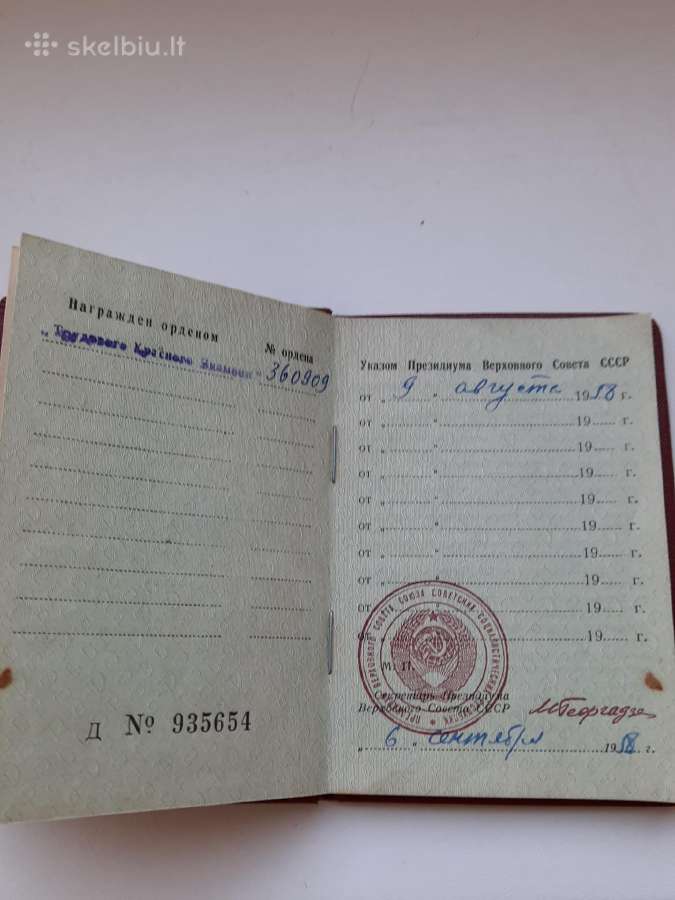 skelbiu.lt
Награжден орденом
№ ордена
„Трудового Красного Знамени" 360909
Д № 935654
Указом Президиума Верховного Совета СССР
от „ 9 " августа 1958 г.
от „ " 19 г.
от „ " 19 г.
от „ " 19 г.
от „ " 19 г.
от „ " 19 г.
от „ " 19 г.
от „ " 19 г.
от „ " 19 г.
от „ " 19 г.
М. П.
Секретарь Президиума
Верховного Совета СССР
МГеоргадзе
„ 6 " сентября 1958 г.
ПРЕЗИДИУМ ВЕРХОВНОГО СОВЕТА СОЮЗА СОВЕТСКИХ СОЦИАЛИСТИЧЕСКИХ РЕСПУБЛИК